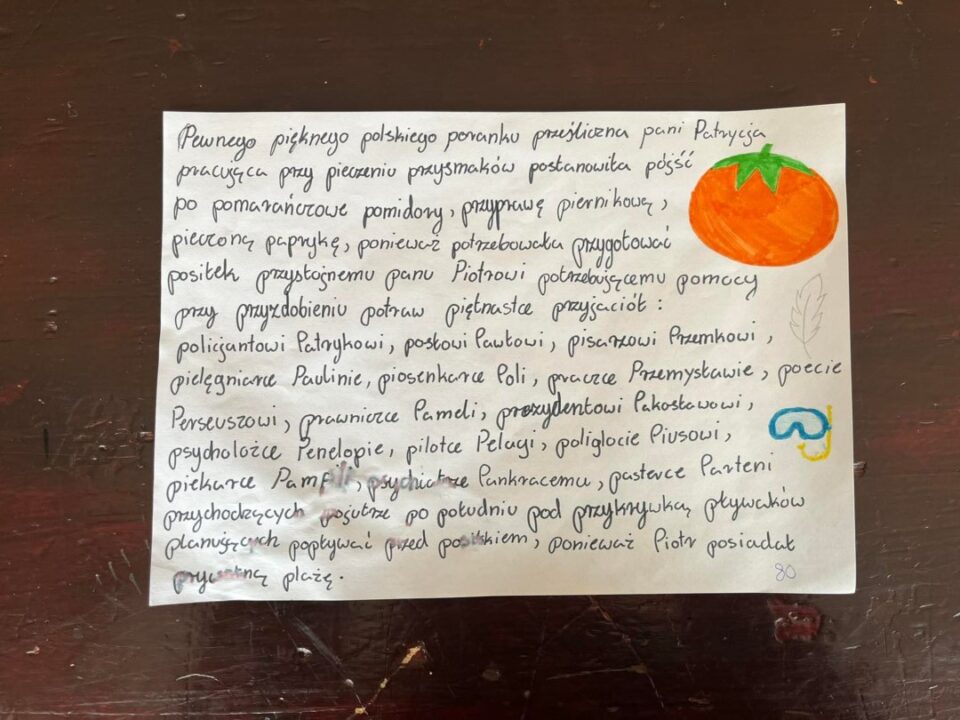 Pewnego pięknego polskiego poranku prześliczna pani Patrycja
pracująca przy pieczeniu przysmaków postanowiła pójść
po pomarańczowe pomidory, przyprawę piernikową,
pieczoną paprykę, ponieważ potrzebowała przygotować
posiłek przystojnemu panu Piotrowi potrzebującemu pomocy
przy przyzdobieniu potraw piętnastce przyjaciół:
policjantowi Patrykowi, posłowi Pawłowi, pisarzowi Przemkowi,
pielęgniarce Paulinie, piosenkarce Poli, praczce Przemysławie, poecie
Perseuszowi, prawniczce Pameli, prezydentowi Pakosławowi,
psycholożce Penelopie, pilotce Pelagi, poliglocie Piusowi,
piekarce Pamfili, psychiatrze Pankracemu, pasterce Parteni
przychodzących pojutrze po południu pod przykrywką pływaków
planujących popływać przed posiłkiem, ponieważ Piotr posiadał
prywatną plażę.
80